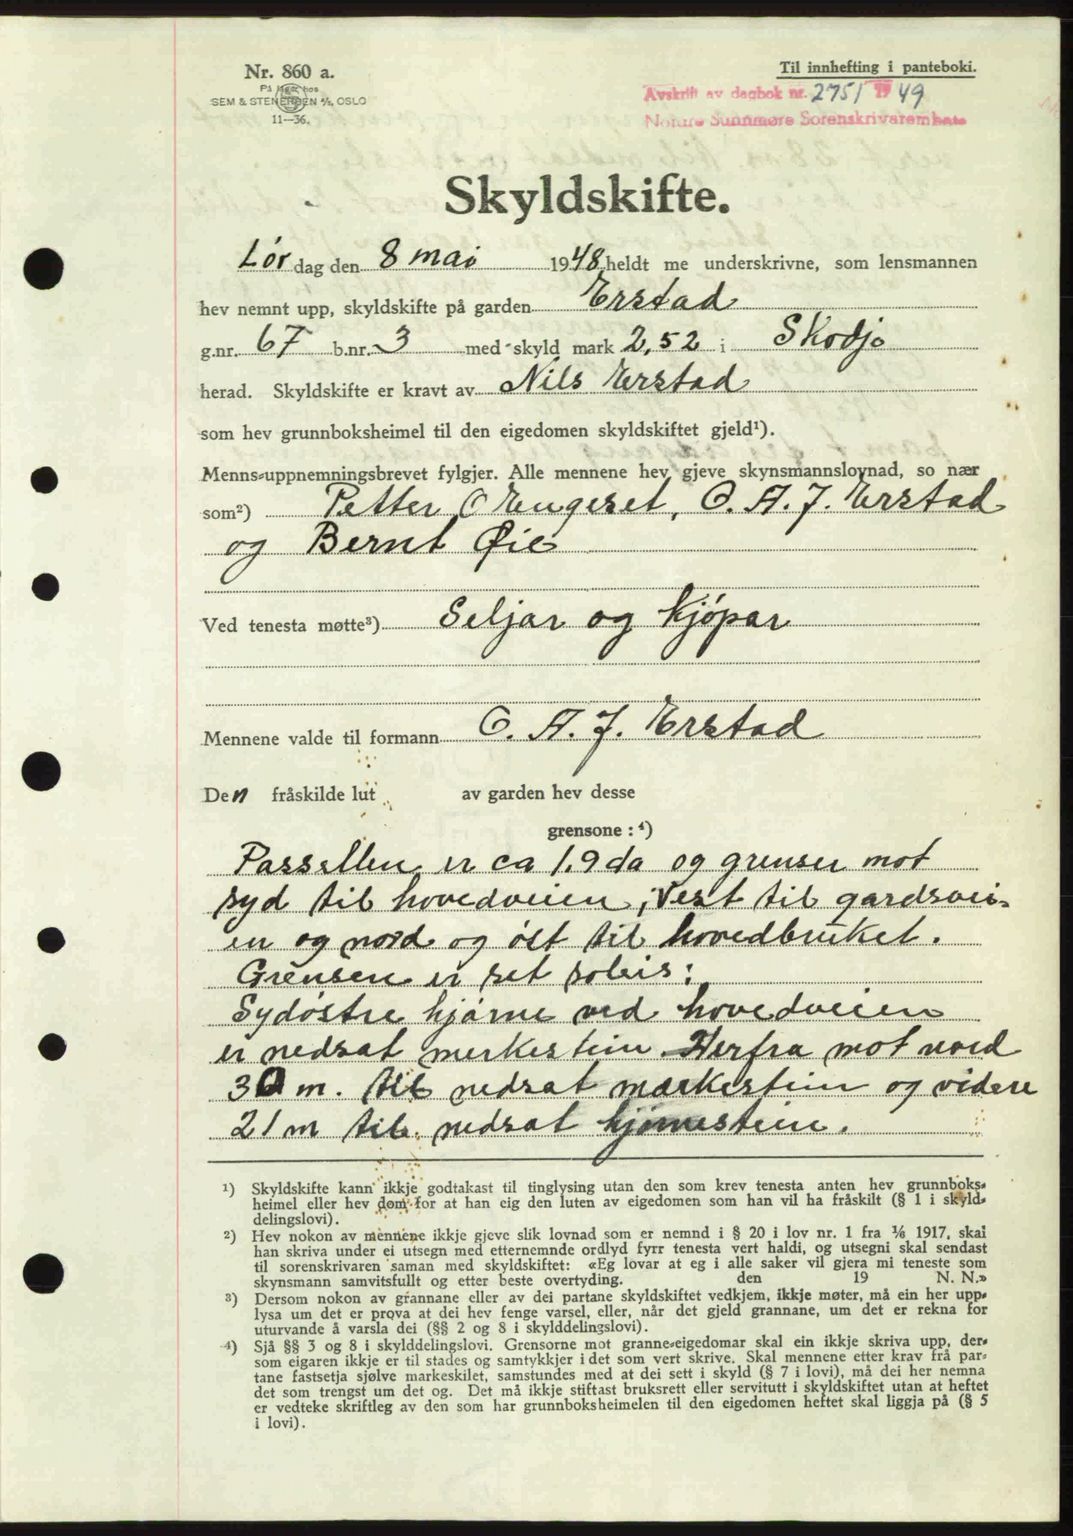 Nr. 860 a.
På lager hos
SEM & STENERSEN A/S, OSLO
11—36.
Til innhefting i panteboki.
Avskrift av dagbok nr. 2751 1949
Nordre Sunnmøre Sorenskrivarembete
Skyldskifte.
Lør dag den 8 mai 1948 heldt me underskrivne, som lensmannen
hev nemnt upp, skyldskifte på garden Erstad
g.nr. 67 b.nr. 3 med skyld mark 2,52 i Skodje
herad. Skyldskifte er kravt av Nils Erstad
som hev grunnboksheimel til den eigedomen skyldskiftet gjeld¹).
Menns-uppnemningsbrevet fylgjer. Alle mennene hev gjeve skynsmannslovnad, so nær
som²) Petter O Engeset, O. A. J. Erstad
og Bernt Øie
Ved tenesta møtte³) Seljar og kjøpar
Mennene valde til formann O. A. J. Erstad
Den fråskilde lut av garden hev desse
grensone : ⁴)
Passellen er ca 1.9 da og grenser mot
syd til hovedveien, Vest til gardsvei-
en og nord og øst til hovedbruket.
Grensen er set soleis:
Sydøstre hjørne ved hovedveien
er nedsat merkestein Herfra mot nord
30 m. til nedsat merkestein og videre
21 m til nedsat hjørnestein.
¹) Skyldskifte kann ikkje godtakast til tinglysing utan den som krev tenesta anten hev grunnboks-
heimel eller hev dom for at han eig den luten av eigedomen som han vil ha fråskilt (§ 1 i skyld-
delingslovi).
²) Hev nokon av mennene ikkje gjeve slik lovnad som er nemnd i § 20 i lov nr. 1 fra 1/6 1917, skal
han skriva under ei utsegn med etternemnde ordlyd fyrr tenesta vert haldi, og utsegni skal sendast
til sorenskrivaren saman med skyldskiftet: «Eg lovar at eg i alle saker vil gjera mi teneste som
skynsmann samvitsfullt og etter beste overtyding. den 19 N. N.»
³) Dersom nokon av grannane eller av dei partane skyldskiftet vedkjem, ikkje møter, må ein her upp-
lysa um det er prova at dei hev fenge varsel, eller, når det gjeld grannane, um det er rekna for
uturvande å varsla dei (§§ 2 og 8 i skylddelingslovi).
⁴) Sjå §§ 3 og 8 i skylddelingslovi. Grensorne mot granne-eigedomar skal ein ikkje skriva upp, der-
som eigaren ikkje er til stades og samtykkjer i det som vert skrive. Skal mennene etter krav frå par-
tane fastsetja sjølve markeskilet, samstundes med at dei sett i skyld (§ 7 i lovi), må dei her nemna
det som trengst um det og. Det må ikkje stiftast bruksrett eller servitutt i skyldskiftet utan at heftet
er vedteke skriftleg av den som har grunnboksheimelen til den eigedomen heftet skal liggja på (§ 5
i lovi).